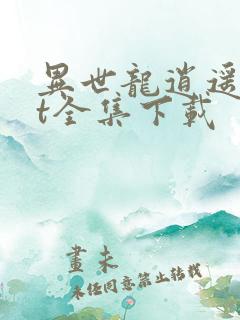 異世龍逍遥
t全集下載
畫未
未经同意禁止转载